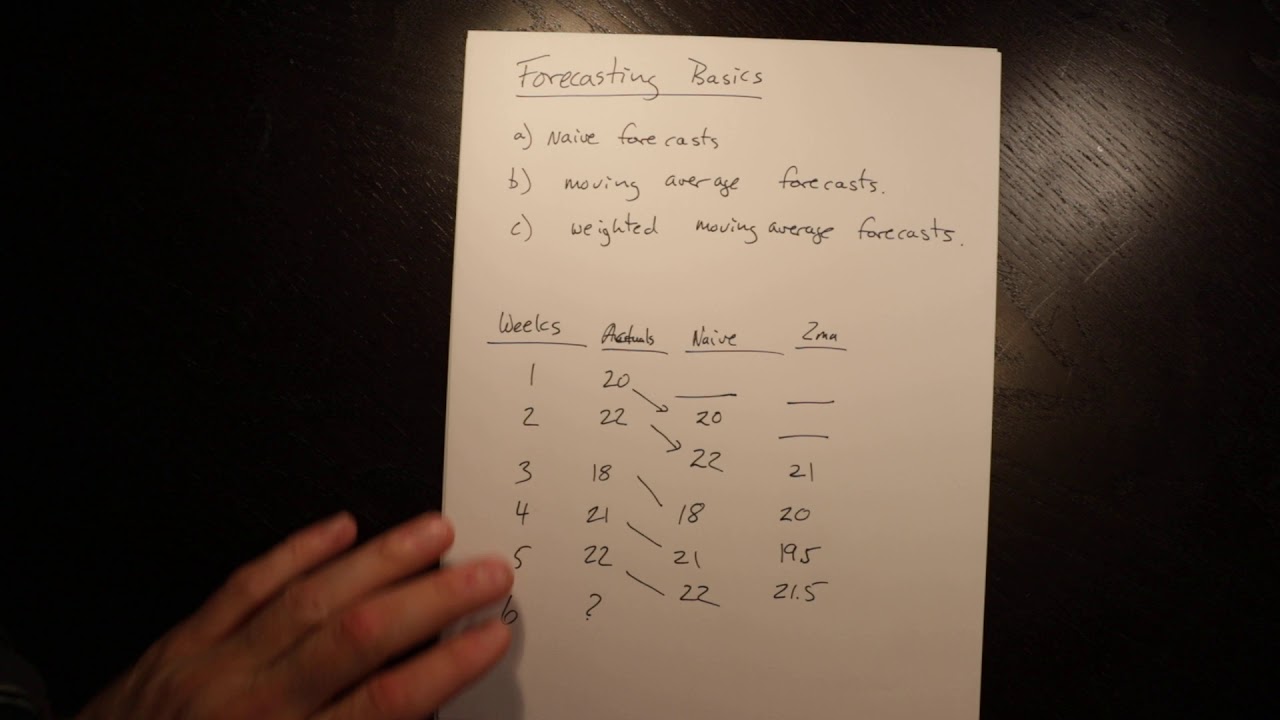 Forecasting Basics
a) Naive forecasts
b) moving average forecasts.
c) weighted moving average forecasts.
Weeks Actuals Naive 2ma
1 20 __ __
2 22 20 __
3 18 22 21
4 21 18 20
5 22 21 19.5
6 ? 22 21.5